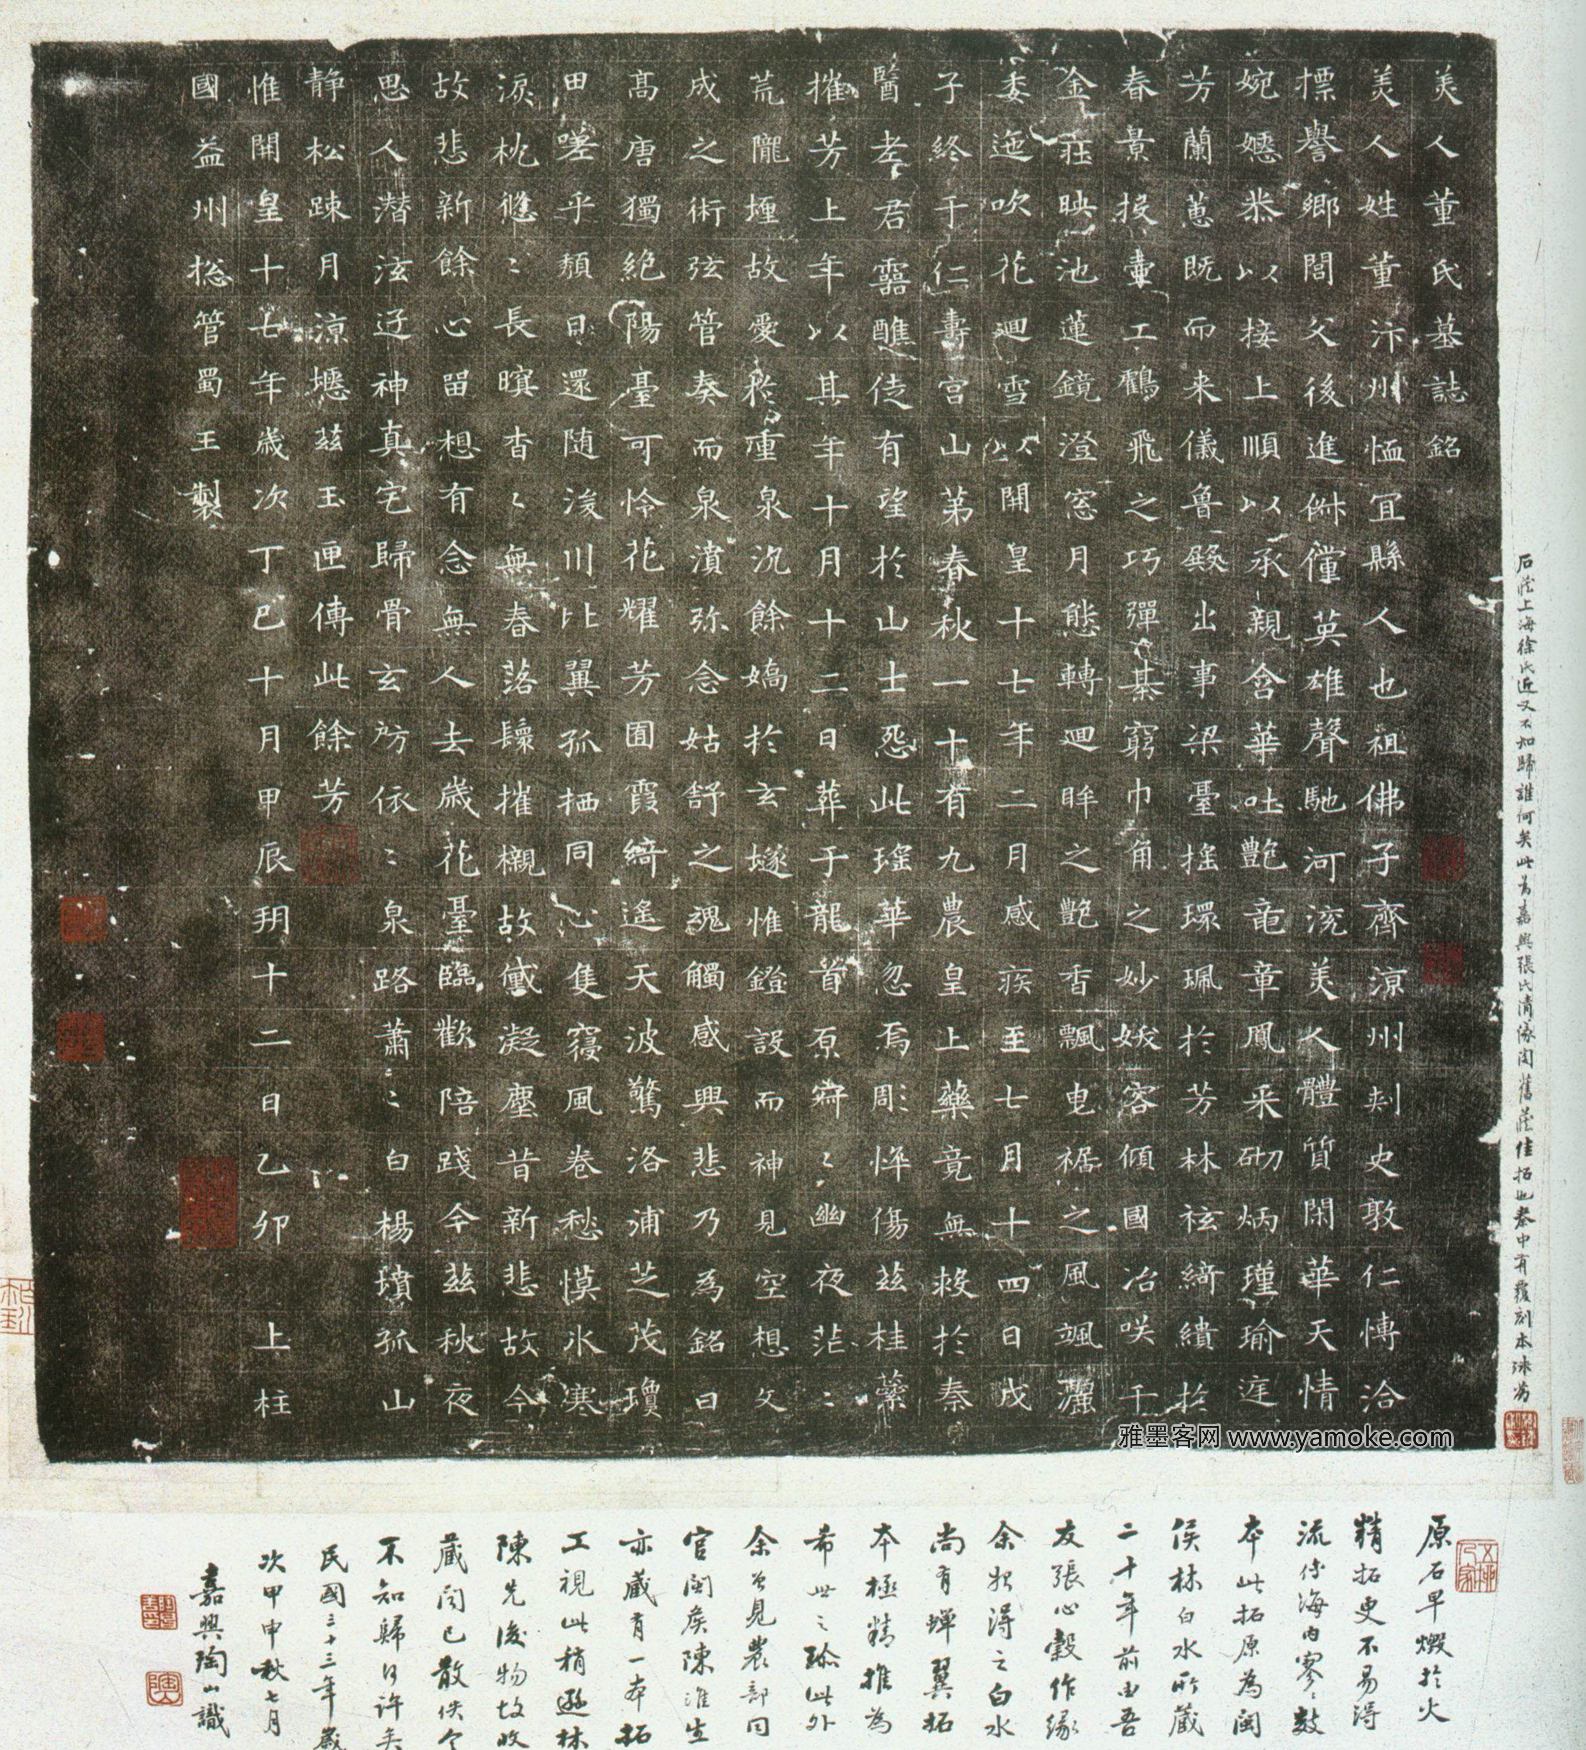 美人董氏墓誌銘
美人姓董汴州恤冝縣人也祖佛子齊涼州刾史敦仁愽洽
摽譽鄉閭父後進俶儻英雄聲馳河沇美人體質閑華天情
婉嫕恭以接上順以承親含華吐艷竜章鳳采砌炳瑾瑜庭
芳蘭蕙既而来儀魯殿出事梁臺搖環珮於芳林袨綺繢於
春景投壷工鶴飛之巧彈棊窮巾角之妙妖容傾國冶咲千
金莊映池蓮鏡澄窓月態轉迴眸之艷香飄曳裾之風颯灑
委迤吹花迴雪以開皇十七年二月感疾至七月十四日戊
子終于仁壽宮山第春秋一十有九農皇上藥竟無救於秦
醫老君靈醮徒有望於山士怨此瑤華忽焉彫悴傷茲桂蘂
摧芳上年以其年十月十二日葬于龍首原寂〻幽夜茫〻
荒隴埋故愛於重泉沉餘嬌於玄墜惟鐙設而神見空想文
成之術弦管奏而泉濆弥念姑舒之魂觸感興悲乃為銘曰
高唐獨絶陽臺可怜花耀芳囿霞綺遙天波驚洛浦芝茂瓊
田嗟乎頽日還隨湲川比翼孤栖同心隻寢風卷愁慔冰寒
淚枕悠〻長暝杳〻無春落鬟摧櫬故黛凝塵昔新悲故今
故悲新餘心留想有念無人去歲花臺臨歡陪踐今茲秋夜
思人潜泫迂神真宅歸骨玄房依〻泉路蕭〻白楊墳孤山
静松踈月涼壥茲玉匣傳此餘芳
惟開皇十七年歲次丁巳十月甲辰朔十二日乙卯上柱
國益州捴管蜀王製
石藏上海徐氏近又不知歸誰何矣此為嘉興張氏清儀閣舊藏佳拓也秦中有覆刻本
原石早燬於火
精拓更不易得
流傳海内寥〻數
本此拓原為閩
侯林白水所藏
二十年前由吾
友張心穀作緣
余始得之白水
尚有蟬翼拓
本極精推為
希世之珍此外
余曾見農部同
官閩矦陳淮生
亦藏有一本拓
工視此稍遜林
陳先後物故收
藏聞已散佚今
不知歸何許矣
民國三十三年歲
次甲申秋七月
嘉興陶 識
雅墨客网 www.yamoke.com